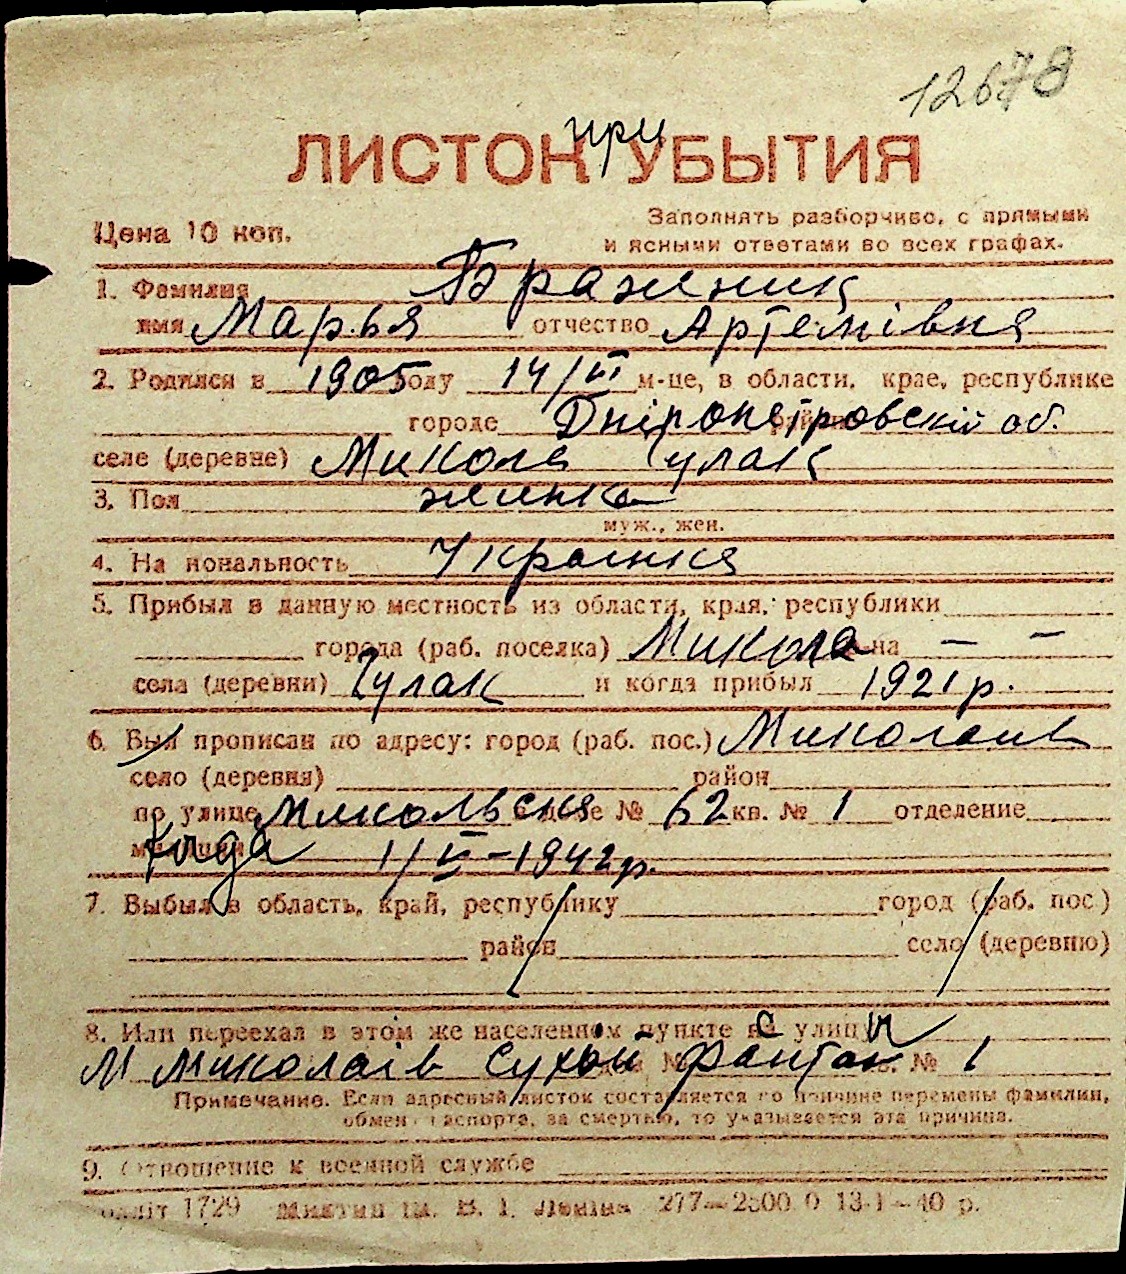 12678
ЛИСТОК при УБЫТИЯ
Цена 10 коп.
Заполнять разборчиво, с прямыми
и ясными ответами во всех графах.
1. Фамилия Бражник
имя Марья отчество Артемівня
2. Родился в 1905 году 14/VI м-це, в области, крае, республике
городе Дніпонетровскій об.
селе (деревне) Микола Гулак
3. Пол жинка
муж., жен.
4. На иональность Украинка
5. Прибыл в данную местность из области, края, республики
города (раб. поселка) Микола на — —
села (деревни) Гулак и когда прибыл 1921 р.
6. Был прописан по адресу: город (раб. пос.) Миколаив
село (деревня) район
по улице Микольская доме № 62 кв. № 1 отделение
милиции Когда 1/VI-1942 р.
7. Выбыл в область, край, республику город (раб. пос.)
район село (деревню)
8. Или переехал в этом же населенном пункте с улицы
М Миколаів Сухой фонтан № 1
Примечание. Если адресный листок составляется по причине перемены фамилии,
обмена паспорта, за смертью, то указывается эта причина.
9. Отношение к военной службе
1729 Миктип ім. В. І. Леніна 277—2500.0 13-I—40 р.